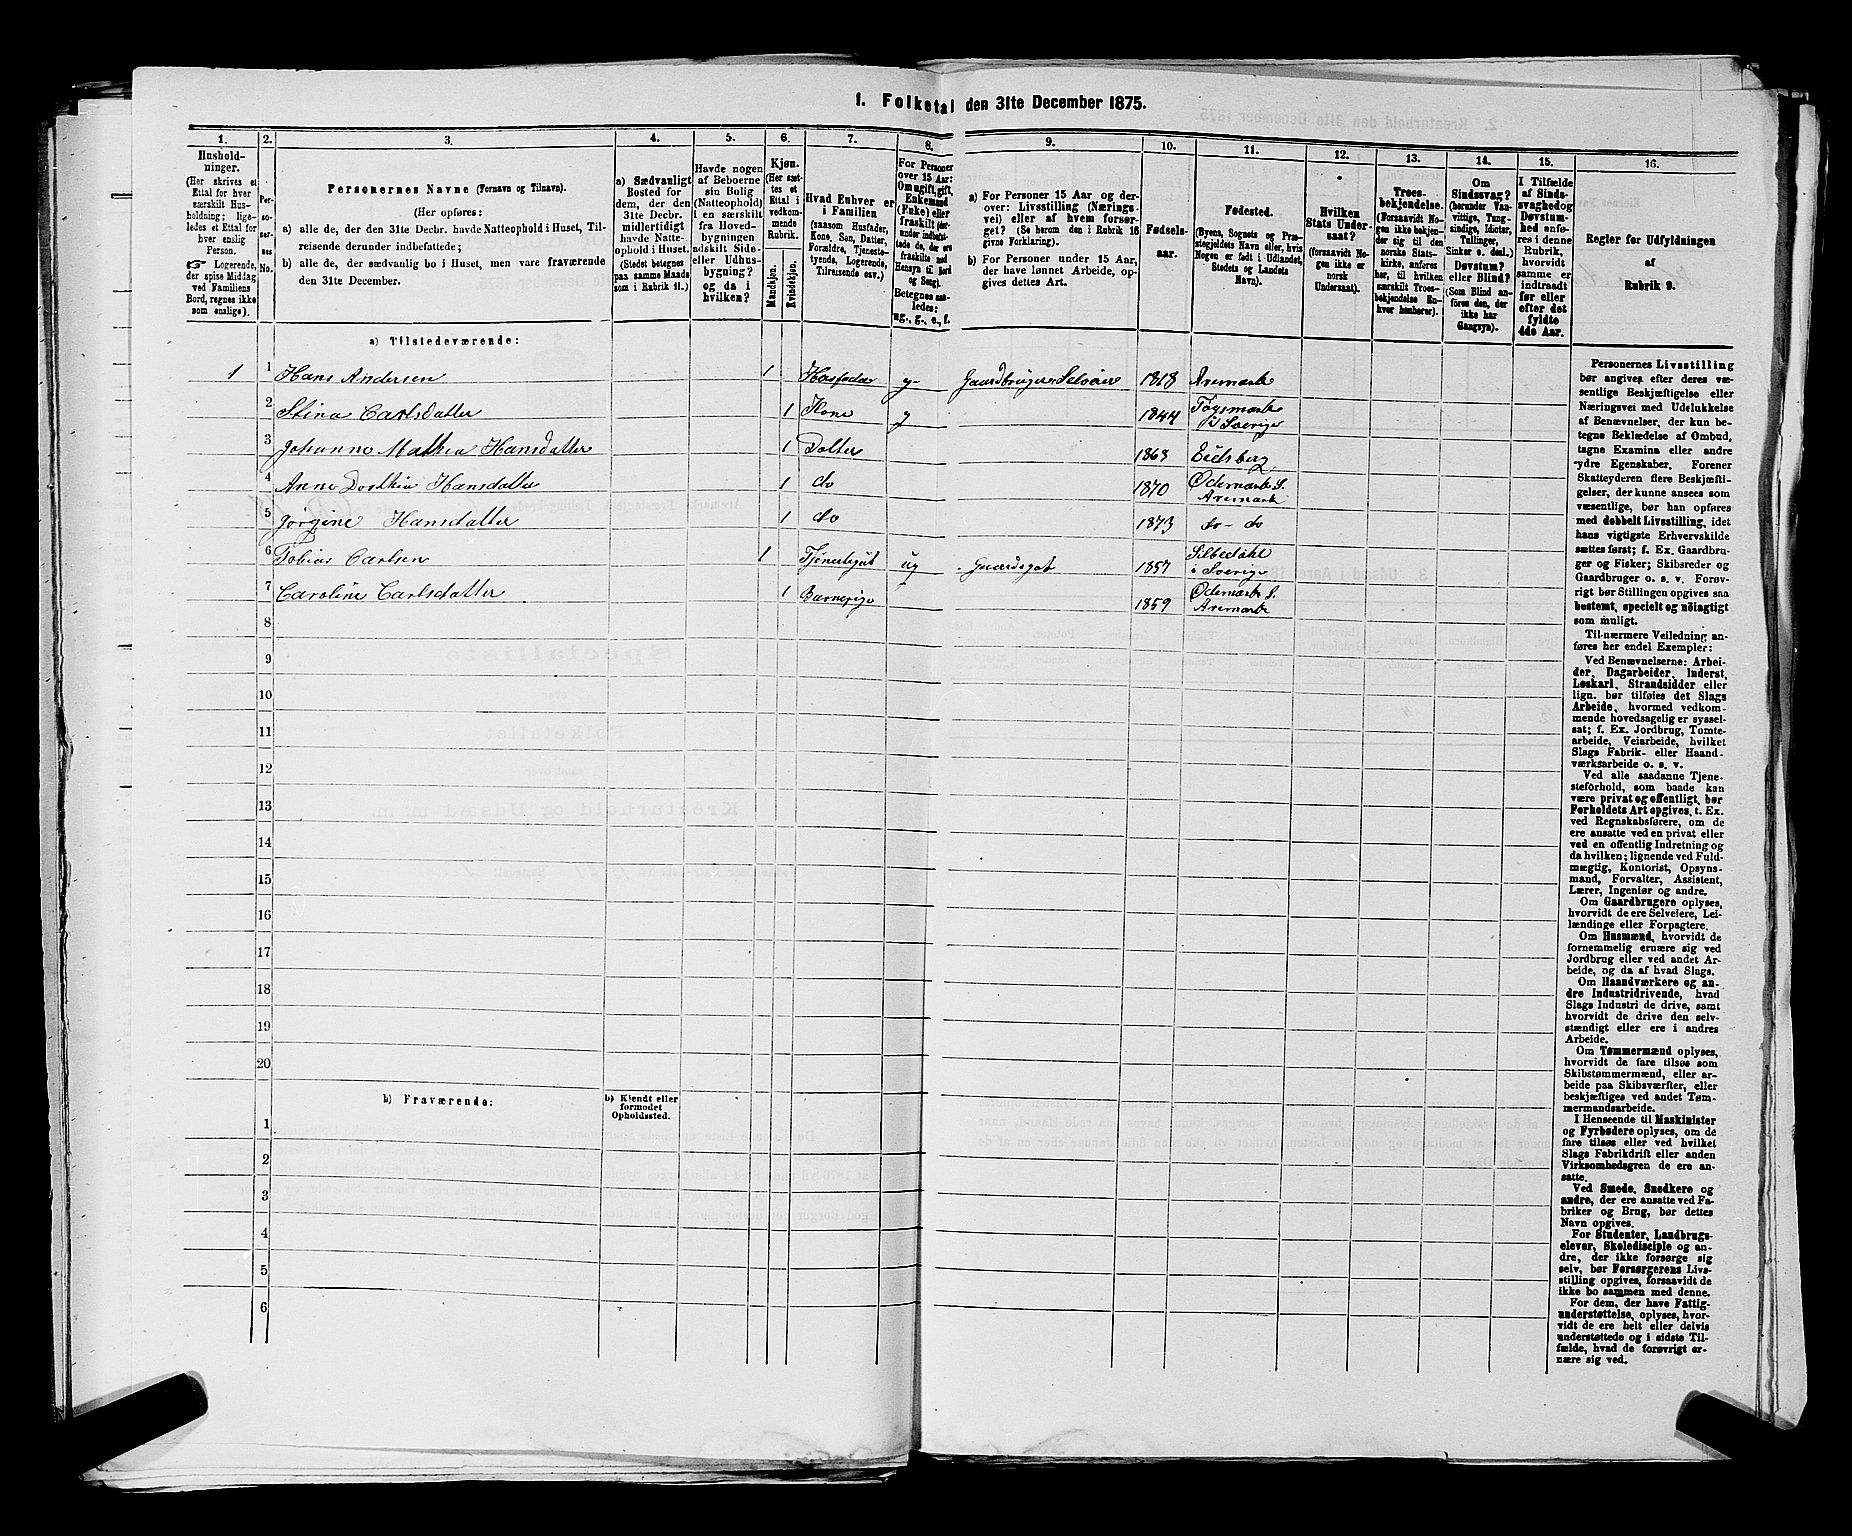 1. Folketal den 31te December 1875.
1. 2. 3. 4. 5. 6. 7. 8. 9. 10. 11. 12. 13. 14. 15. 16.
Hushold-
ninger.
(Her skrives et
Ettal for hver
særskilt Hus-
holdning; lige-
ledes et Ettal for
hver enslig
Person.
☞ Logerende,
der spise Middag
ved Familiens
Bord, regnes ikke
som enslige).
Per-
so-
ner-
nes
No.
Personernes Navne (Fornavn og Tilnavn).
(Her opføres:
a) alle de, der den 31te Decbr. havde Natteophold i Huset, Til-
reisende derunder indbefattede;
b) alle de, der sædvanlig bo i Huset, men vare fraværende
den 31te December.
a) Sædvanligt
Bosted for
dem, der den
31te Decbr.
midlertidigt
havde Natte-
ophold i Huset.
(Stedet betegnes
paa samme Maade
som i Rubrik 11.)
Havde nogen
af Beboerne
sin Bolig
(Natteophold)
i en særskilt
fra Hoved-
bygningen
adskilt Side-
eller Udhus-
bygning?
og da i
hvilken?
Kjøn.
(Her sæt-
tes et
Ettal i
vedkom-
mende
Rubrik.
Mandkjøn.
Kvindekjøn.
Hvad Enhver er
i Familien
(saasom Husfader,
Kone, Søn, Datter,
Forældre, Tjeneste-
tyende, Logerende,
Tilreisende osv.)
For Personer
over 15 Aar:
Om ugift, gift,
Enkemand
(Enke) eller
fraskilt
Betegnes saa-
ledes:
ug., g., e., f.
a) For Personer 15 Aar og der-
over: Livsstilling (Nærings-
vei) eller af hvem forsør-
get? (Se herom den i Rubrik 16
givne Forklaring).
b) For Personer under 15 Aar,
der have lønnet Arbeide, op-
gives dettes Art.
Fødsels-
aar.
Fødested.
(Byens, Sognets og Præ-
stegjeldets Navn eller, hvis
Nogen er født i Udlandet,
Stedets og Landets
Navn).
Hvilken
Stats Under-
saat?
(forsaavidt No-
gen ikke er
norsk
Undersaat).
Troes-
bekjendelse.
(Forsaavidt No-
gen ikke bekjen-
der sig til den
norske Stats-
kirke, anføres
her, til hvilken
særskilt Troes-
bekjendelse En-
hver henhører).
Om
Sindssvag?
(herunder Van-
vittige, Tung-
sindige, Idioter,
Tullinger,
Sinker o. desl.)
Døvstum?
eller Blind?
(Som Blind an-
føres den, der
ikke har
Gangsyn).
I Tilfælde
af Sinds-
svaghed og
Døvstum-
hed anfø-
res i denne
Rubrik,
hvorvidt
samme er
indtraadt
før eller
efter det
fyldte
4de Aar.
Regler for Udfyldningen
af
Rubrik 9.
a) Tilstedeværende:
1 1 Hans Andersen 1 Husfader g. Gaardbruger Selveier 1818 Aremark
2 Stina Carlsdatter 1 Kone g 1844 Togsmark
i Sverige
3 Johanne Mathea Hansdatter 1 Datter 1863 Eidsberg
4 Anne Dorthea Hansdatter 1 do 1870 Ødemark S.
Aremark
5 Jørgine Hansdatter 1 do 1873 do- do
6 Tobias Carlsen 1 Tjenestegut ug Gaardsgut 1857 Silbedahl
i Sverige
7 Caroline Carlsdatter 1 Barnepige 1859 Ødemark S.
Aremark
8
9
10
11
12
13
14
15
16
17
18
19
20
b) Fraværende:
b) Kjendt eller
formodet
Opholdssted.
1
2
3
4
5
6
Personernes Livsstilling
bør angives efter deres væ-
sentlige Beskjæftigelse eller
Næringsvei med Udelukkelse
af Benævnelser, der kun be-
tegne Beklædelse af Ombud,
tagne Examina eller andre
ydre Egenskaber. Forener
Skatteyderen flere Beskjæfti-
gelser, der kunne ansees som
væsentlige, bør han opføres
med dobbelt Livsstilling, idet
hans vigtigste Erhvervskilde
sættes først; f. Ex. Gaardbru-
ger og Fisker; Skibsreder og
Gaardbruger o. s. v. Forøv-
rigt bør Stillingen opgives saa
bestemt, specielt og nöiagtigt
som muligt.
Til nærmere Veiledning an-
føres her endel Exempler:
Ved Benævnelserne: Arbei-
der, Dagarbeider, Inderst,
Løskarl, Strandsidder eller
lign. bør tilføies det Slags
Arbeide, hvormed vedkom-
mende hovedsagelig er syssel-
sat; f. Ex. Jordbrug, Tomte-
arbeide, Veiarbeide, hvilket
Slags Fabrik- eller Haand-
værksarbeide o. s. v.
Ved alle saadanne Tjene-
steforhold, som baade kan
være privat og offentligt, bør
Forholdets Art opgives, t. Ex.
ved Regnskabsførere, om de
ere ansatte ved en privat eller
ved en offentlig Indretning og
da hvilken; lignende ved Fuld-
mægtig, Kontorist, Opsyns-
mand, Forvalter, Assistent,
Lærer, Ingeniør og andre.
Om Gaardbrugere oplyses,
hvorvidt de ere Selveiere, Lei-
lændinge eller Forpagtere.
Om Husmænd, hvorvidt de
fornemmelig ernære sig ved
Jordbrug eller ved andet Ar-
beide, og da af hvad Slags.
Om Haandværkere og an-
dre Industridrivende, hvad
Slags Industri de drive, samt
hvorvidt de drive den selv-
stændigt eller ere i andres
Arbeide.
Om Tømmermænd oplyses,
hvorvidt de fare tilsøs som
Skibstømmermænd, eller ar-
beide paa Skibsværfter, eller
beskjæftiges ved andet Tøm-
mermandsarbeide.
I Henseende til Maskinister
og Fyrbødere oplyses, om de
fare tilsøs eller ved hvilket
Slags Fabrikdrift eller anden
Virksomhedsgren de ere an-
satte.
Ved Smede, Snedkere og
andre, der ere ansatte ved Fa-
briker og Brug, bør dettes
Navn opgives.
For Studenter, Landbrugs-
elever, Skoledisciple og an-
dre, der ikke forsørge sig
selv, bør Forsørgerens Livs-
stilling opgives, forsaavidt de
ikke bo sammen med denne.
For dem, der have Fattig-
understøttelse, oplyses, hvor-
vidt de ere helt eller delvis
understøttede og i sidste Til-
fælde, hvad de forøvrigt er-
nære sig ved.